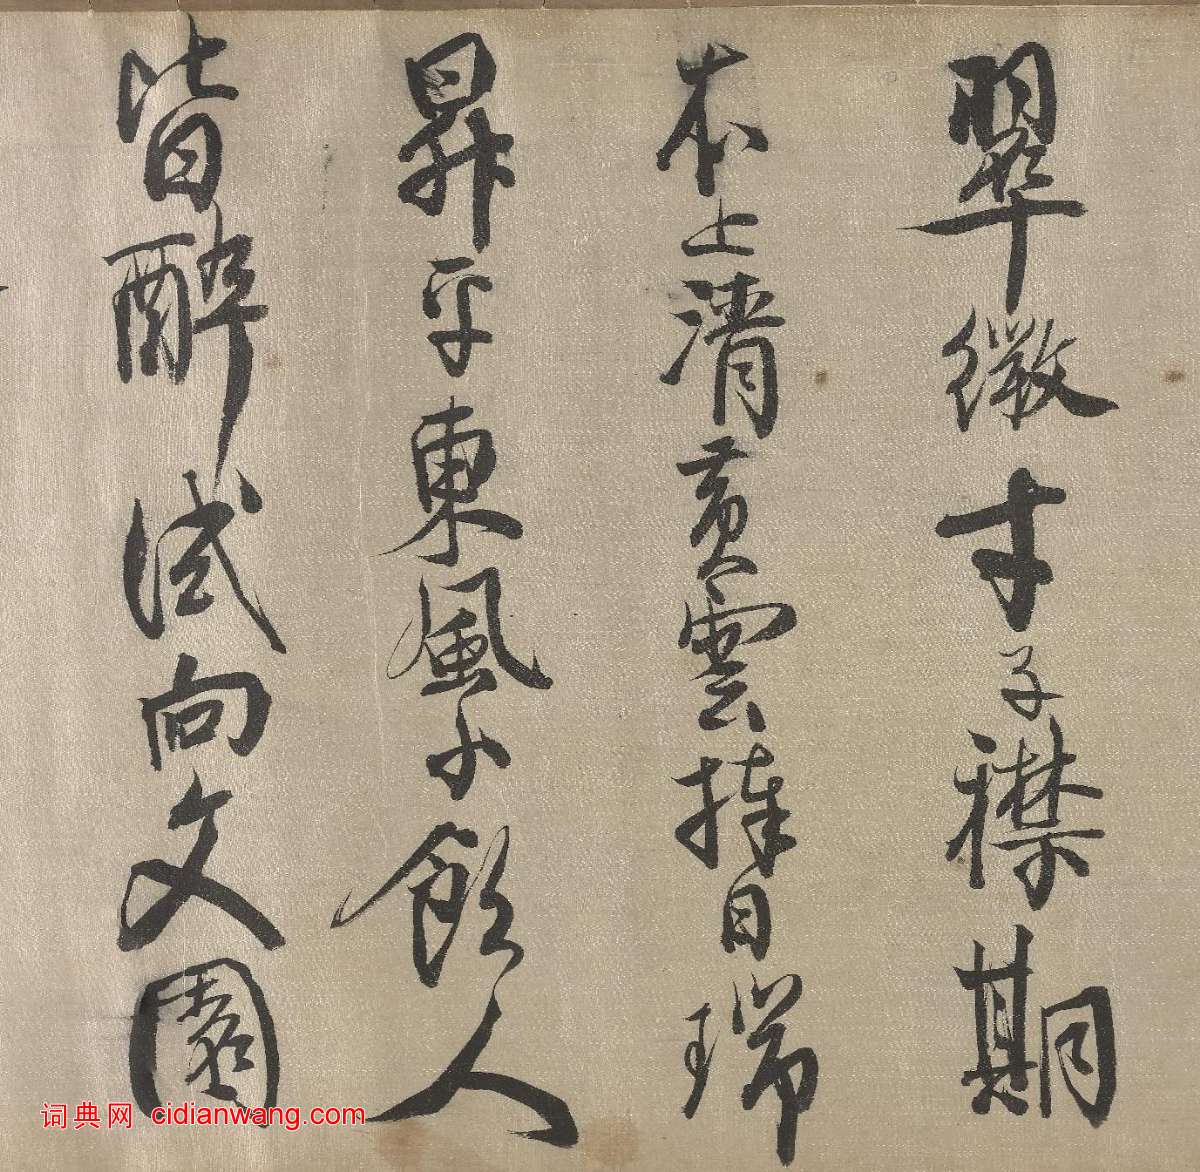 翠微才子襟期
本上清黄雲捧日瑞
昇平東風小飲人
皆醉試向文園
词典网 cidianwang.com